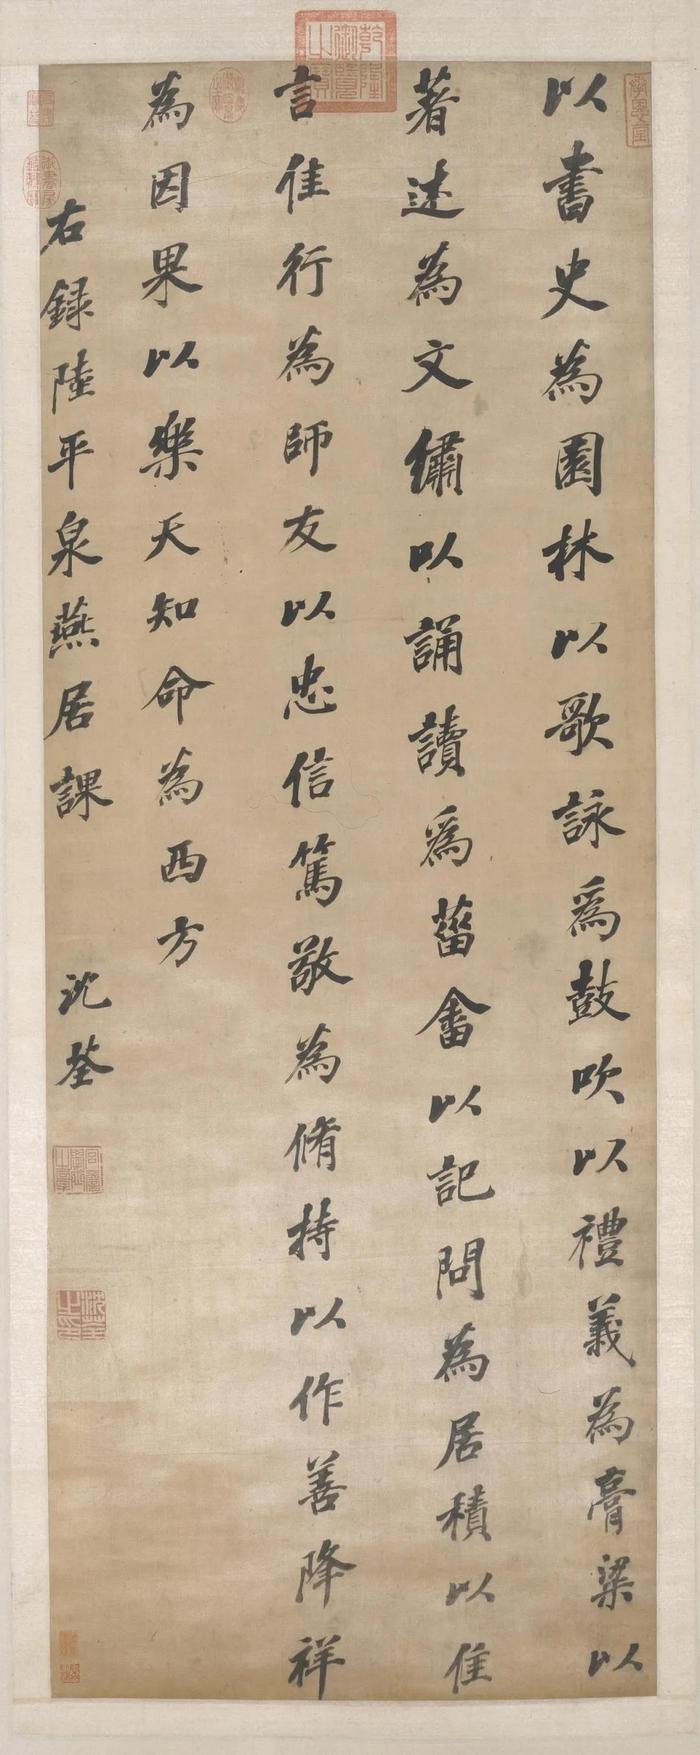 以書史為園林以歌詠爲鼓吹以禮義為膏粱以
著述為文繡以誦讀爲菑畬以記問為居積以佳
言佳行為師友以忠信篤敬為脩持以作善降祥
為因果以樂天知命為西方
右録陸平泉燕居課 沈荃
乾隆御覽之寶
沈荃之印